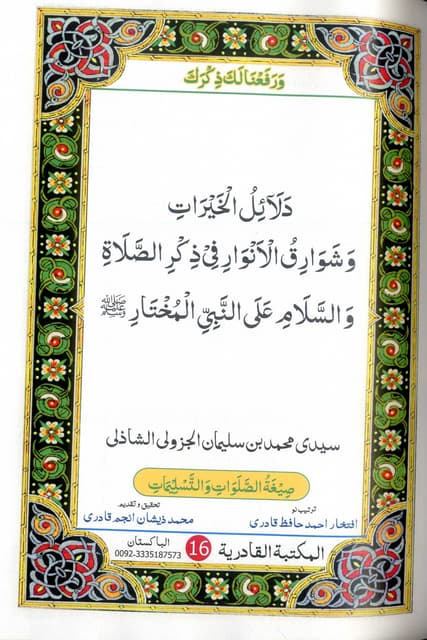 وَرَفَعْنَالَكَ ذِكْرَكَ
دَلَآئِلُ الْخَيْرَاتِ
وَشَوَارِقُ الْاَنْوَارِ فِيْ ذِكْرِ الصَّلَاةِ
وَالسَّلَامِ عَلَى النَّبِيِّ الْمُخْتَارِ ﷺ
سیدی محمد بن سلیمان الجزولی الشاذلی
صِيْغَةُ الصَّلَوَاتِ وَالتَّسْلِيْمَاتِ
ترتیب نو تحقیق و تقدیم
افتخار احمد حافظ قادری محمد ذیشان انجم قادری
المكتبة القادرية 16 الباكستان
0092-3335187573